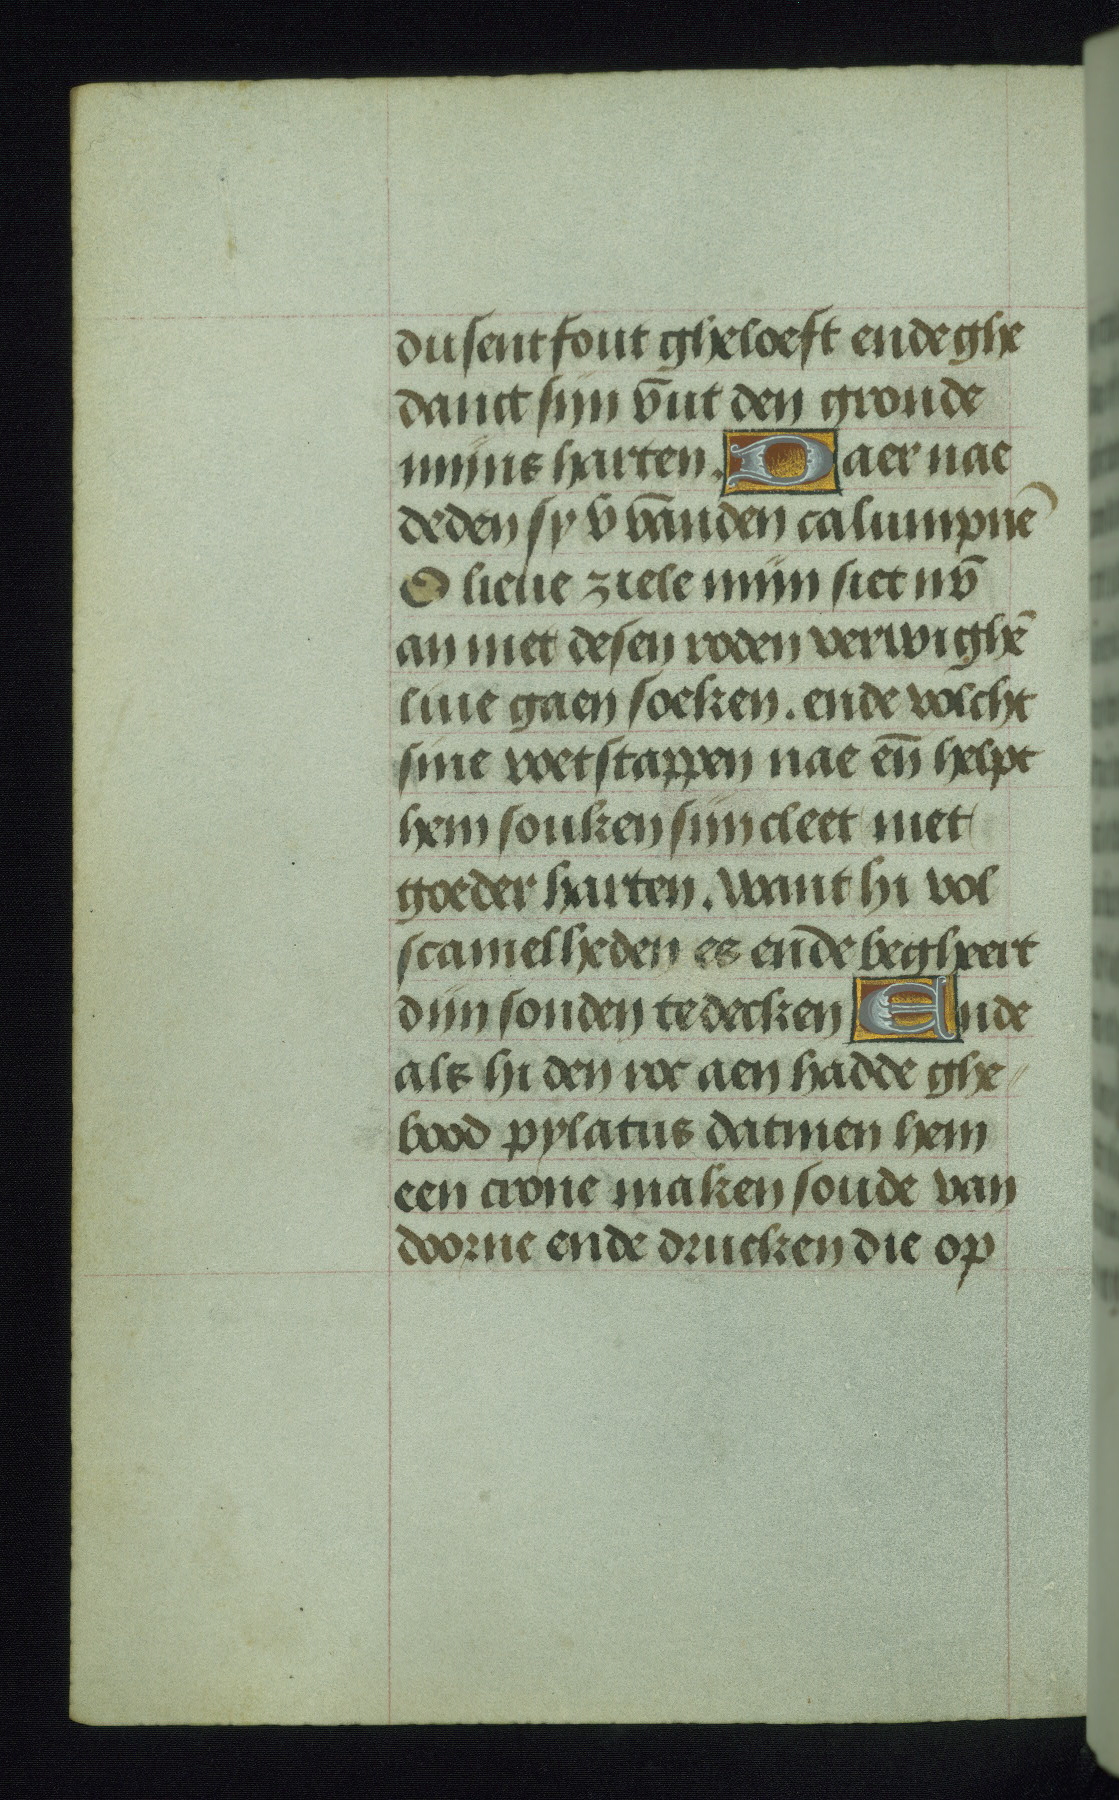 dusentfout gheloeft ende ghe
danct sijn v̄ut den gronde
mijns harten. Daer nae
deden sy v̄ vāanden calumpnē
O lieue ziele mijn siet nv̄
an met desen roden verwighē
liue gaen soeken. ende volcht
sine voetstappen nae en̄ helpt
hem souken sijn cleet met
goeder harten. Want hi vol
scamelheden es ende begheert
dijn sonden te decken Ende
als hi den roc aen hadde ghe⸗
bood pylatus datmen hem
een crone maken soude van
doorne ende drucken die op